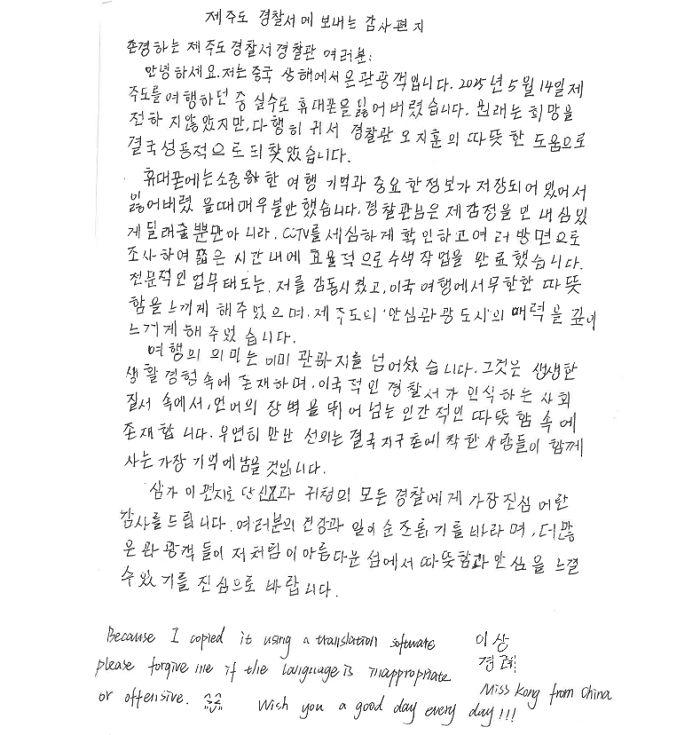 제주도 경찰서에 보내는 감사편지
존경하는 제주도 경찰서 경찰관 여러분:
안녕하세요. 저는 중국 상해에서 온 관광객입니다. 2025년 5월 14일 제
주도를 여행하던 중 실수로 휴대폰을 잃어버렸습니다. 원래는 희망을
전하지 않았지만, 다행히 귀서 경찰관 오지훈의 따뜻한 도움으로
결국 성공적으로 되찾았습니다.
휴대폰에는 소중한 여행 기억과 중요한 정보가 저장되어 있어서
잃어버렸을 때 매우 불안했습니다. 경찰관님은 제 감정을 인내심 있
게 달래줄 뿐만 아니라, CCTV를 세심하게 확인하고 여러 방면으로
조사하여 짧은 시간 내에 효율적으로 수색 작업을 완료했습니다.
전문적인 업무 태도는, 저를 감동시켰고, 이국 여행에서 무한한 따뜻
함을 느끼게 해주었으며, 제주도의 '안심관광도시'의 매력을 깊이
느끼게 해주었습니다.
여행의 의미는 이미 관광지를 넘어섰습니다. 그것은 생생한
생활 경험 속에 존재하며, 이국적인 경찰서가 인식하는 사회
질서 속에서, 언어의 장벽을 뛰어넘는 인간적인 따뜻함 속에
존재합니다. 우연히 만난 선의는 결국 지구촌에 착한 사람들이 함께
사는 가장 기억에 남을 것입니다.
삼가 이 편지로 귀청의 모든 경찰에게 가장 진심 어린
감사를 드립니다. 여러분의 건강과 일이 순조롭기를 바라며, 더 많
은 관광객들이 저처럼 이 아름다운 섬에서 따뜻함과 안심을 느낄
수 있기를 진심으로 바랍니다.
Because I copied it using a translation software
please forgive me if the language is inappropriate
or offensive. Wish you a good day every day!!!
이상
경례!
Miss Kong from China